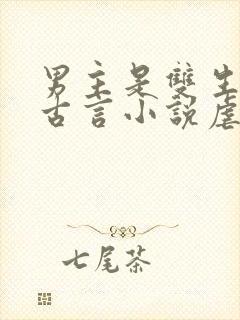 男主是雙生
古言小說虐
七尾茶